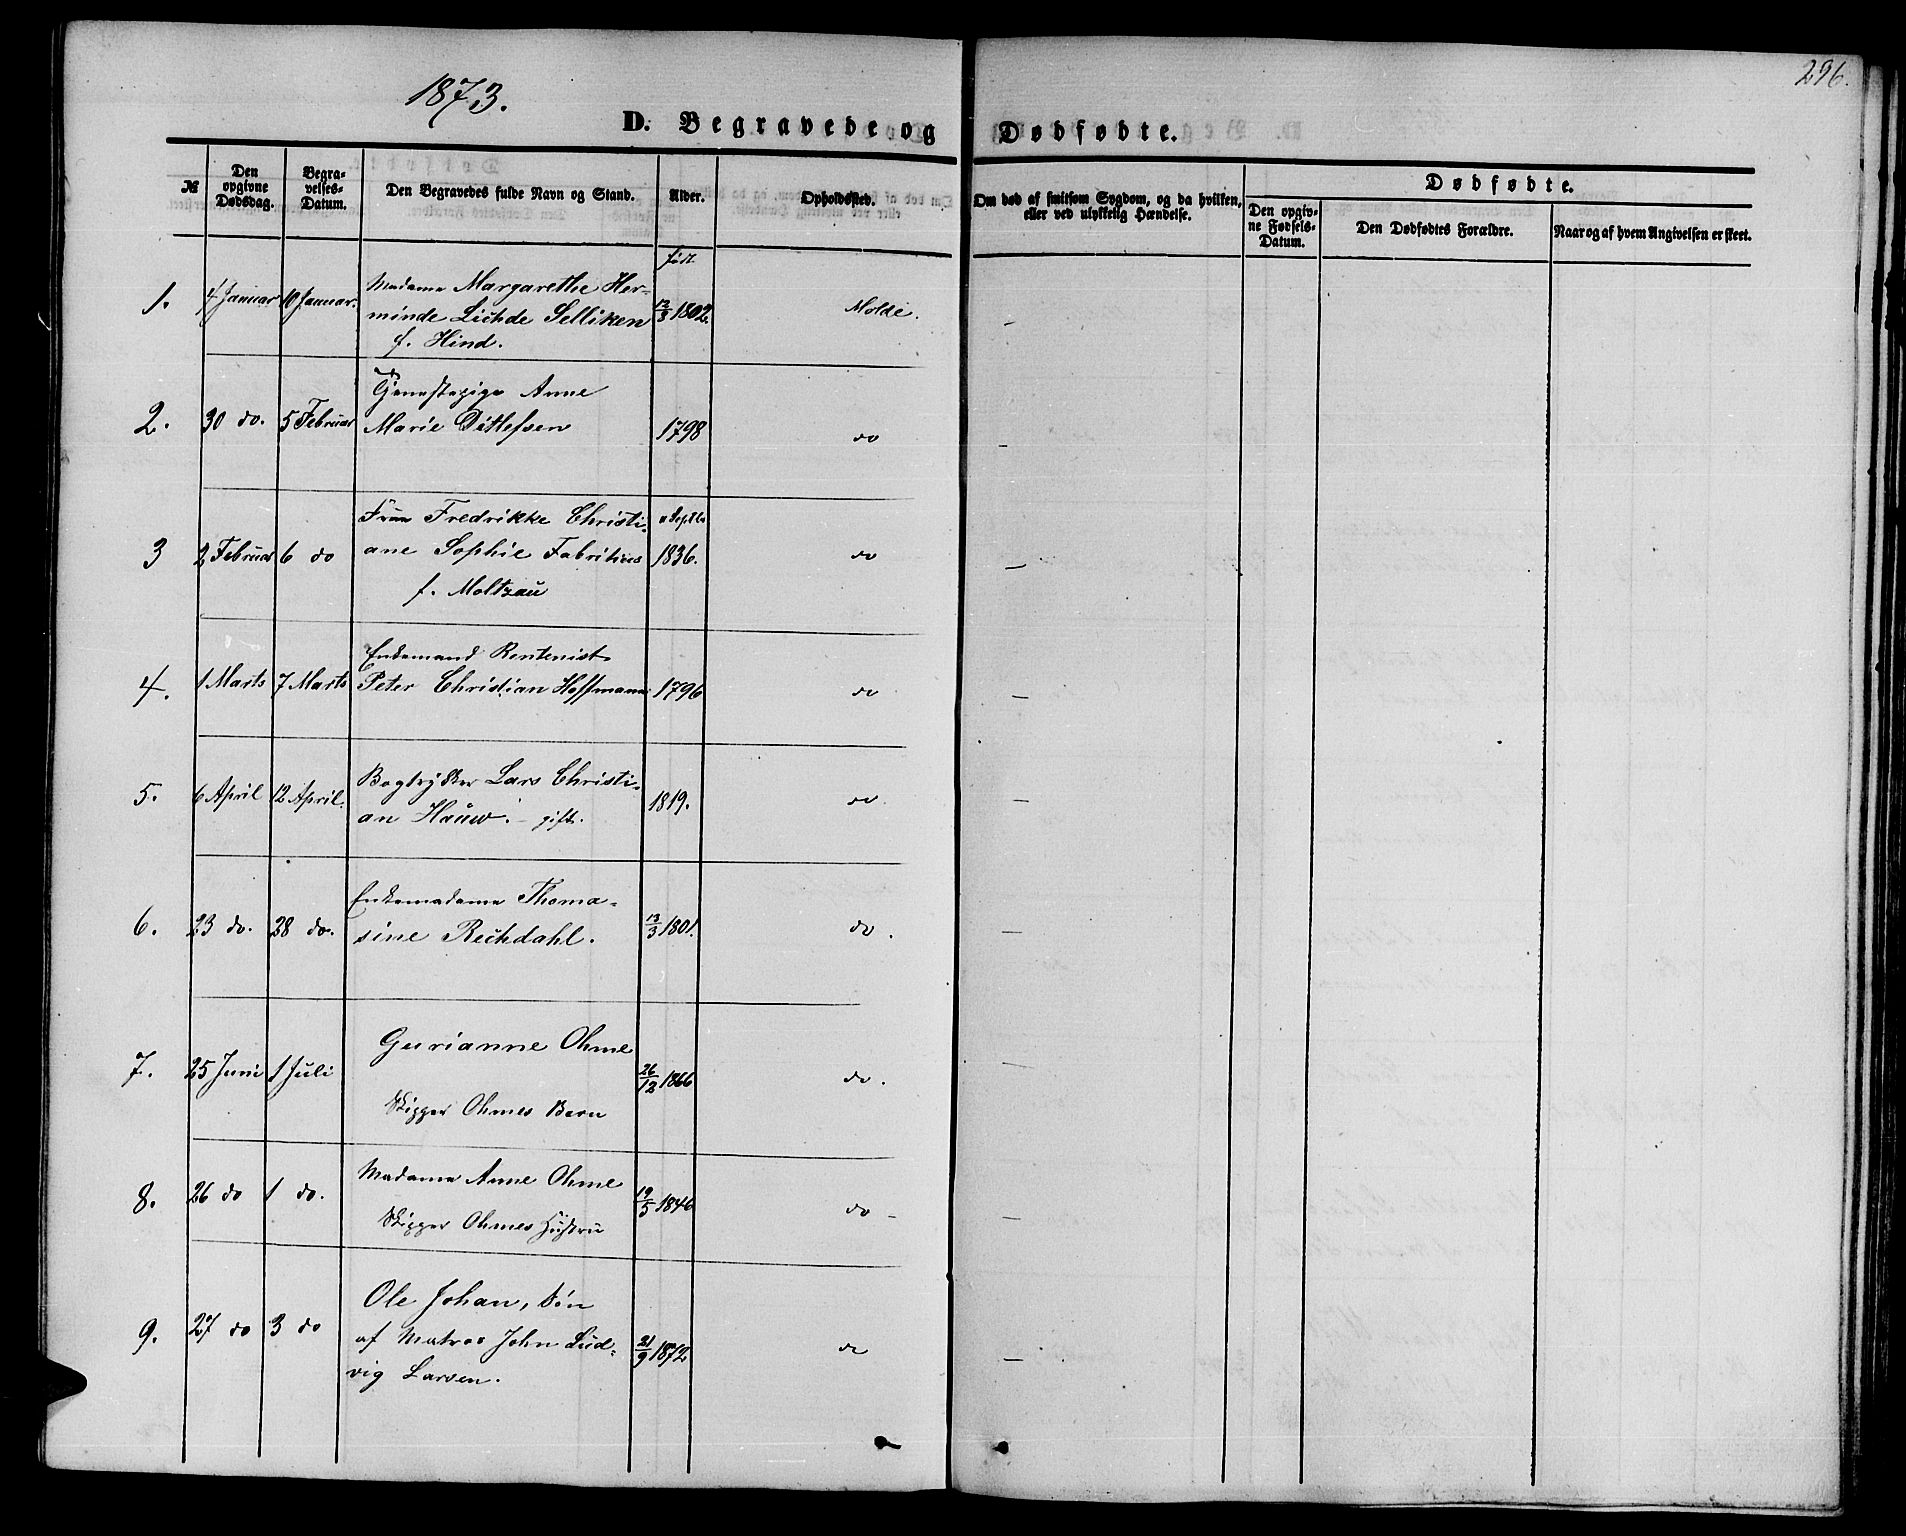 1873.
296.
D. Begravede og Dødfødte.
№
Den opgivne Dødsdag.
Begravelses-Datum.
Den Begravedes fulde Navn og Stand.
Alder.
Opholdssted.
Om død af smitsom Sygdom, og da hvilken, eller ved ulykkelig Hændelse.
Dødfødte.
Den opgivne Fødsels-Datum.
Den Dødfødtes Forældre.
Naar og af hvem Angivelsen er skeet.
født
1. 4 Januar 10 Januar. Madame Margarethe Her-
minde Lichde Selliken 12/3 1802. Molde. –
f. Hind.
2. 30 do. 5 Februar Tjenestepige Anne
Marie Ditlefsen 1798 do –
3 2 Februar 6 do Frue Fredrikke Christi- Septbr
ane Sophie Fabritius 1836. do –
f. Moltzau
4. 1 Marts 7 Marts Enkemand Rentenist
Peter Christian Hoffmann 1796 do –
5. 6 April 12 April. Bogtrykker Lars Christi-
an Hauw. – gift. 1819. do. –
6. 23 do. 28 do. Enkemadame Thoma-
sine Rechdahl. 13/3 1801. do. –
7. 25 Juni 1 Juli Gurianne Ohme
Skipper Ohmes Barn 26/12 1866 do. –
8. 26 do 1 do. Madame Anne Ohme
Skipper Ohmes Hustru 19/5 1846 do –
9. 27 do 3 do Ole Johan, Søn
af Matros John Lud-
vig Larsen. 21/9 1872 do –